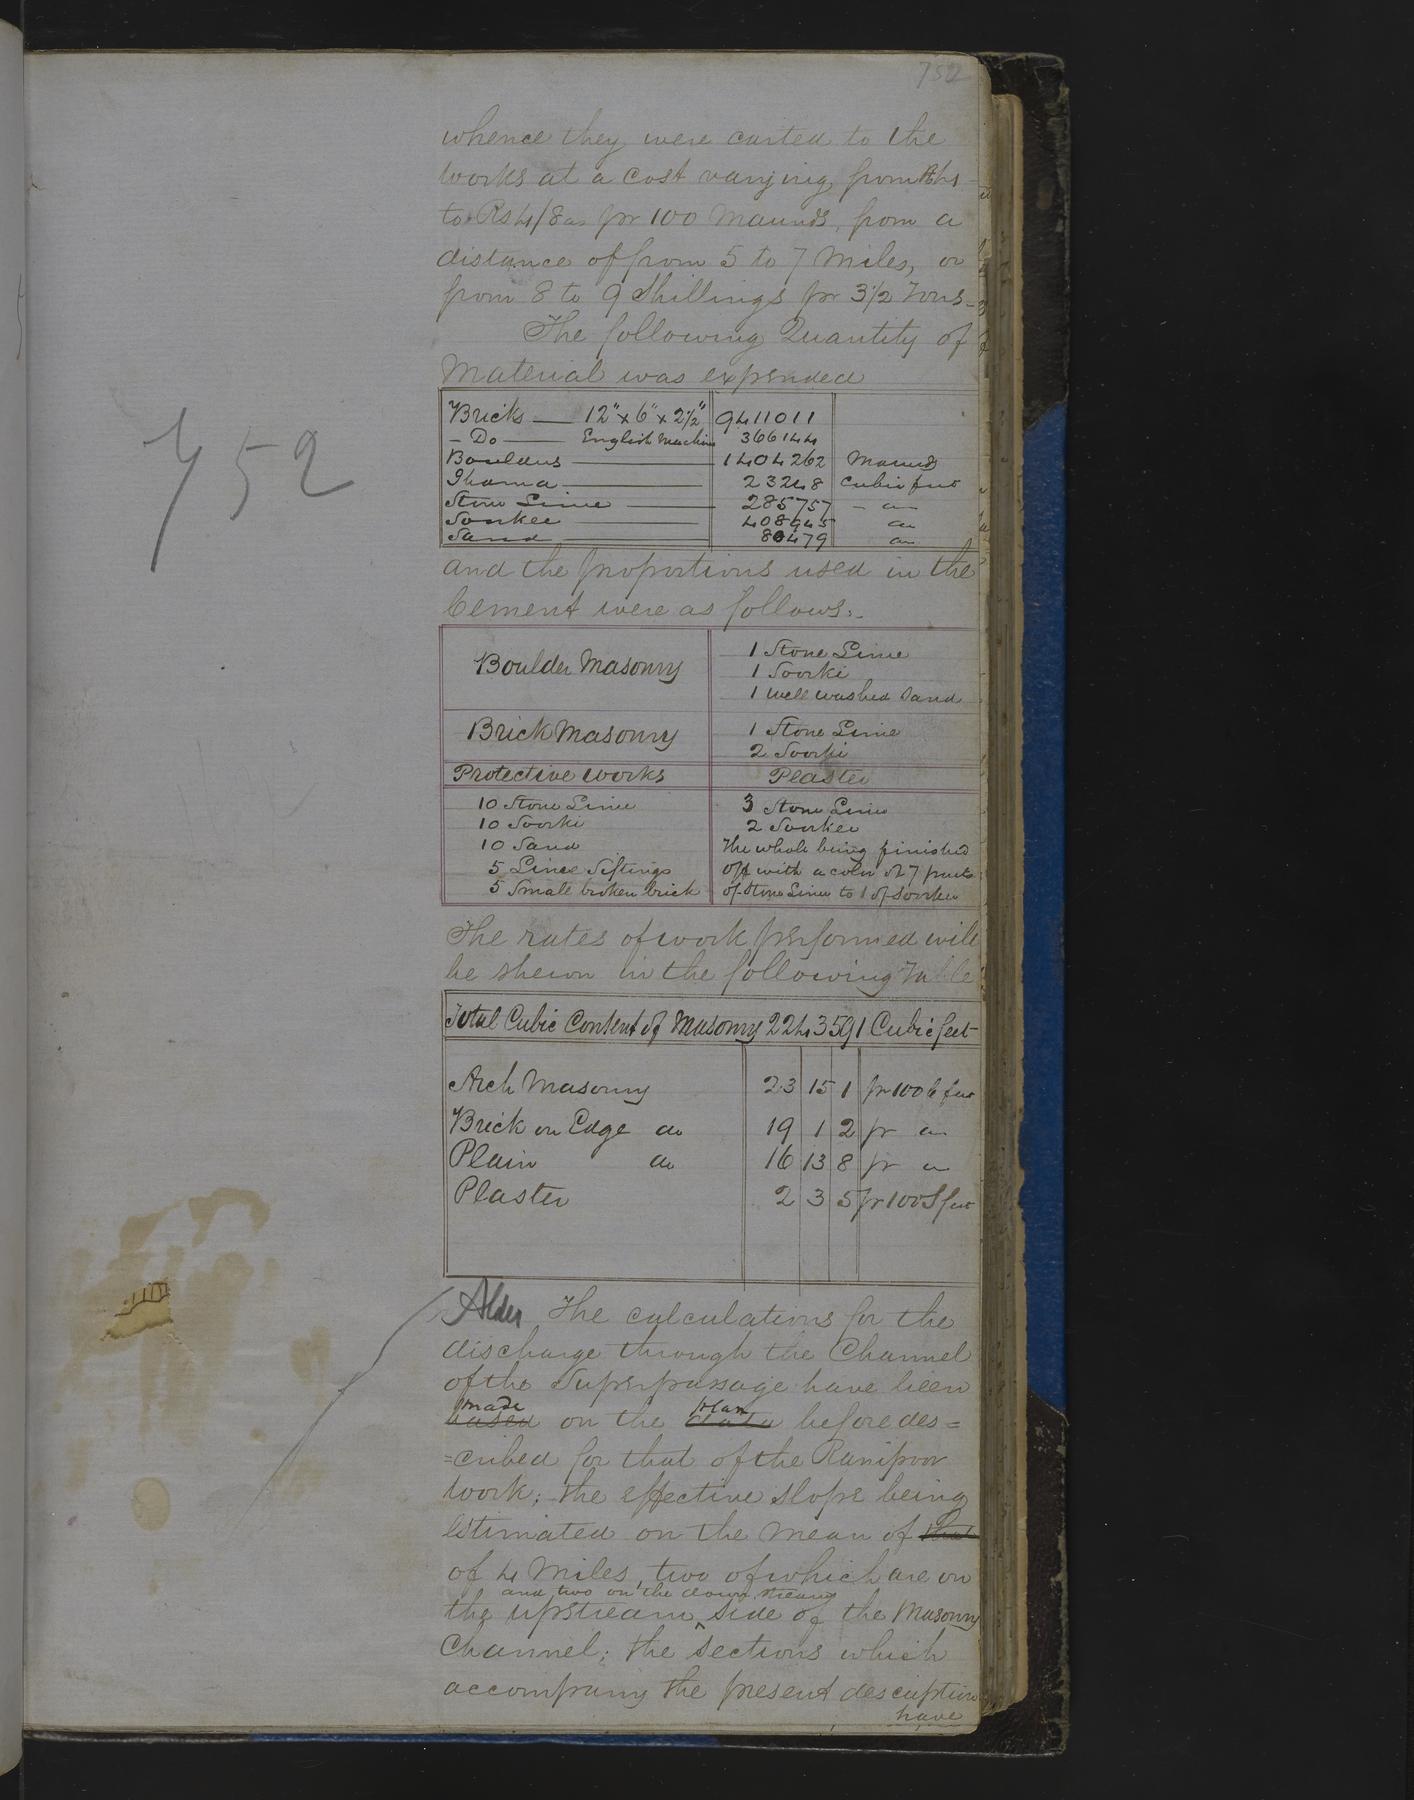 752
752
whence they were carted to the
works at a cost varying from Rs 4
to Rs 4/8as pr 100 Maunds, from a
distance of from 5 to 7 Miles, or
from 8 to 9 Shillings pr 3½ Tons-
The following Quantity of
Material was expended
Bricks — 12" x 6" x 2½" 9411011
- Do — English Machine 366144
Boulders — 1404262 Maunds
Jhama — 23248 Cubic feet
Stone Lime — 285757 - do
Soorkee — 408945 do
Sand — 80479 do
and the proportions used in the
Cement were as follows:-
Boulder Masonry 1 Stone Lime
1 Soorki
1 well washed sand
Brick Masonry 1 Stone Lime
2 Soorki
Protective works Plaster
10 Stone Lime 3 Stone Lime
10 Soorki 2 Soorkee
10 Sand The whole being finished
5 Lime Siftings off with a color of 7 parts
5 Small broken brick of Stone Lime to 1 of Soorkee
The rates of work performed will
be shewn in the following Table
Total Cubic Content of Masonry 2243591 Cubic feet
Arch Masonry 23 15 1 pr 100 C feet
Brick on Edge do 19 1 2 pr do
Plain do 16 13 8 pr do
Plaster 2 3 5 pr 100 S feet
Alder The calculations for the
discharge through the Channel
of the Superpassage have been
made plan
based on the data before des=
=cribed for that of the Ranipoor
work; the effective slope being
estimated on the mean of that
of 4 Miles, two of which are on
and two on the down stream
the upstream ^ side of the Masonry
Channel; the sections which
accompany the present description
have